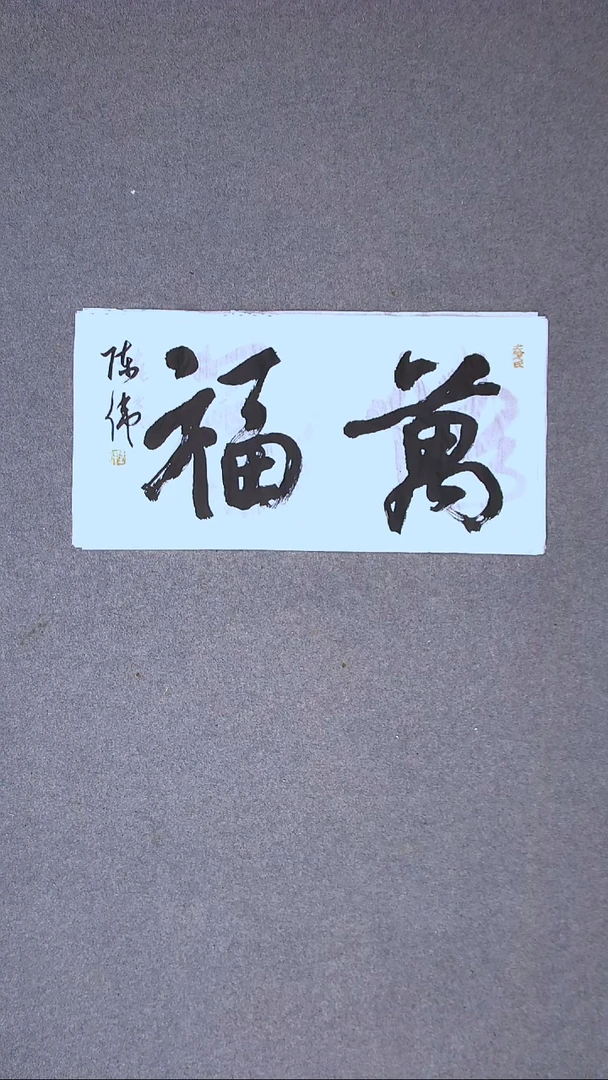 萬福
陈伟